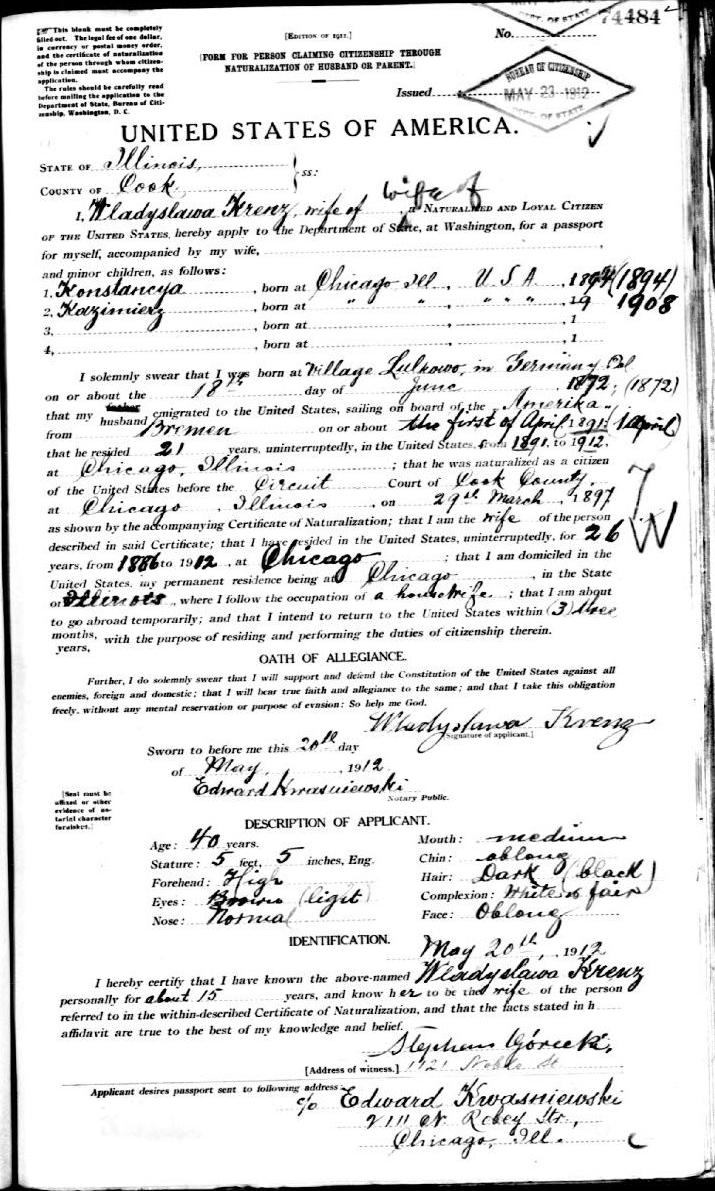 This blank must be completely
filled out. The legal fee of one dollar,
in currency or postal money order,
and the certificate of naturalization
of the person through whom citizen-
ship is claimed must accompany the
application.
The rules should be carefully read
before mailing the application to the
Department of State, Bureau of Citi-
zenship, Washington, D. C.
[EDITION OF 1911.]
[FORM FOR PERSON CLAIMING CITIZENSHIP THROUGH
NATURALIZATION OF HUSBAND OR PARENT.]
DEPT. OF STATE
No. 74484
Issued
BUREAU OF CITIZENSHIP
MAY 23 1912
DEPT. OF STATE
UNITED STATES OF AMERICA.
STATE OF Illinois,
COUNTY OF Cook } ss:
wife of
I, Wladyslawa Krenz, wife of, a NATURALIZED AND LOYAL CITIZEN
OF THE UNITED STATES, hereby apply to the Department of State, at Washington, for a passport
for myself, accompanied by my wife,
and minor children, as follows:
1. Konstancya, born at Chicago Ill, U. S. A., 1894 (1894)
2. Kazimierz, born at " " " " ", 19 1908
3, born at , 1
4, born at , 1
I solemnly swear that I was born at Village Lulkowo, in Germany Pol
on or about the 18th day of June 1872; (1872)
that my father husband emigrated to the United States, sailing on board of the "Amerika"
from Bremen on or about the first of April 1891; (1 april)
that he resided 21 years, uninterruptedly, in the United States, from 1891 to 1912,
at Chicago, Illinois ; that he was naturalized as a citizen
of the United States before the Circuit Court of Cook County,
at Chicago, Illinois, on 29th March, 1897
as shown by the accompanying Certificate of Naturalization; that I am the wife of the person
described in said Certificate; that I have resided in the United States, uninterruptedly, for 26
years, from 1886 to 1912, at Chicago ; that I am domiciled in the
United States, my permanent residence being at Chicago, in the State
of Illinois, where I follow the occupation of a housewife ; that I am about
to go abroad temporarily; and that I intend to return to the United States within (3) three
months, years, with the purpose of residing and performing the duties of citizenship therein.
7
W
OATH OF ALLEGIANCE.
Further, I do solemnly swear that I will support and defend the Constitution of the United States against all
enemies, foreign and domestic; that I will bear true faith and allegiance to the same; and that I take this obligation
freely, without any mental reservation or purpose of evasion: So help me God.
Wladyslawa Krenz
[Signature of applicant.]
Sworn to before me this 20th day
of May, 1912
Edward Kwasniewski
Notary Public.
[Seal must be
affixed or other
evidence of no-
tarial character
furnished.]
DESCRIPTION OF APPLICANT.
Age: 40 years.
Stature: 5 feet, 5 inches, Eng.
Forehead: High
Eyes: Brown (light)
Nose: Normal
Mouth: medium
Chin: oblong
Hair: Dark (black)
Complexion: White & fair
Face: Oblong
IDENTIFICATION.
May 20th, 1912
I hereby certify that I have known the above-named Wladyslawa Krenz
personally for about 15 years, and know her to be the wife of the person
referred to in the within-described Certificate of Naturalization, and that the facts stated in h
affidavit are true to the best of my knowledge and belief.
Stephen Górecki,
[Address of witness.] 1121 Noble St
Applicant desires passport sent to following address:
c/o Edward Kwasniewski
2111 N. Robey Str.,
Chicago, Ill.